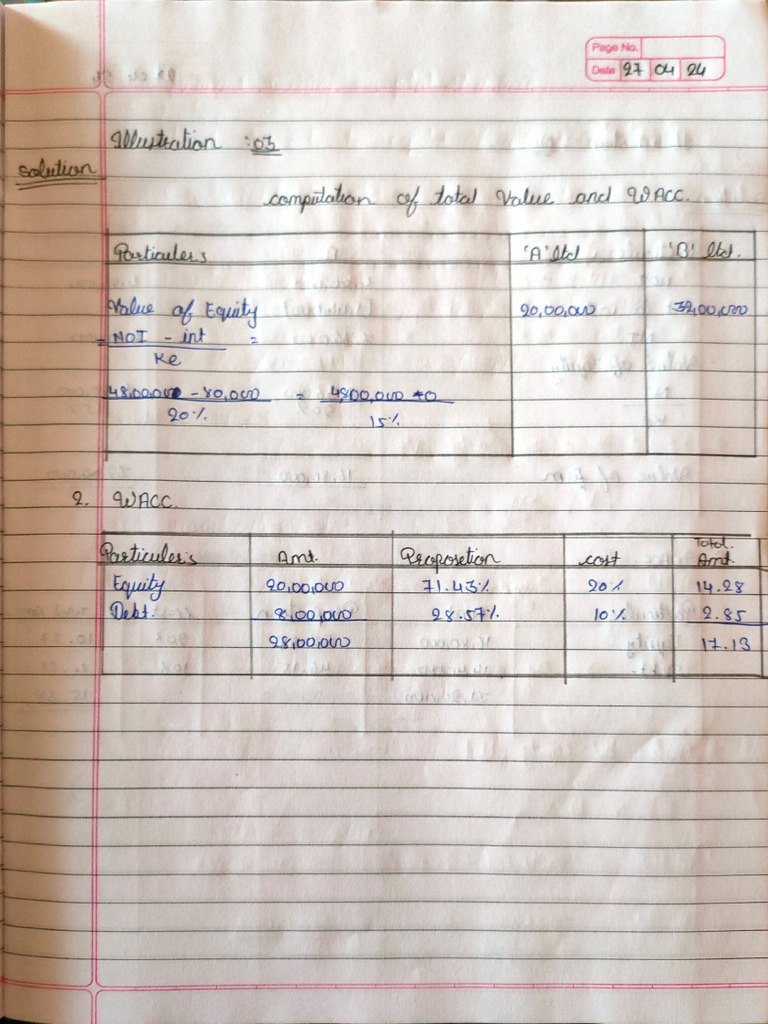 Page No.
Date 27 04 24
Illustration :03
Solution
computation of total Value and WACC.
Particulers 'A' ltd 'B' ltd.
Value of Equity 20,00,000 32,00,000
= NOI - int =
Ke
48,00,000 - 80,000 = 4800,000 - 0
20% 15%
2. WACC.
Particuler's Amt. Proposetion cost Total Amt.
Equity 20,00,000 71.43% 20% 14.28
Debt. 8,00,000 28.57% 10% 2.85
28,00,000 17.13